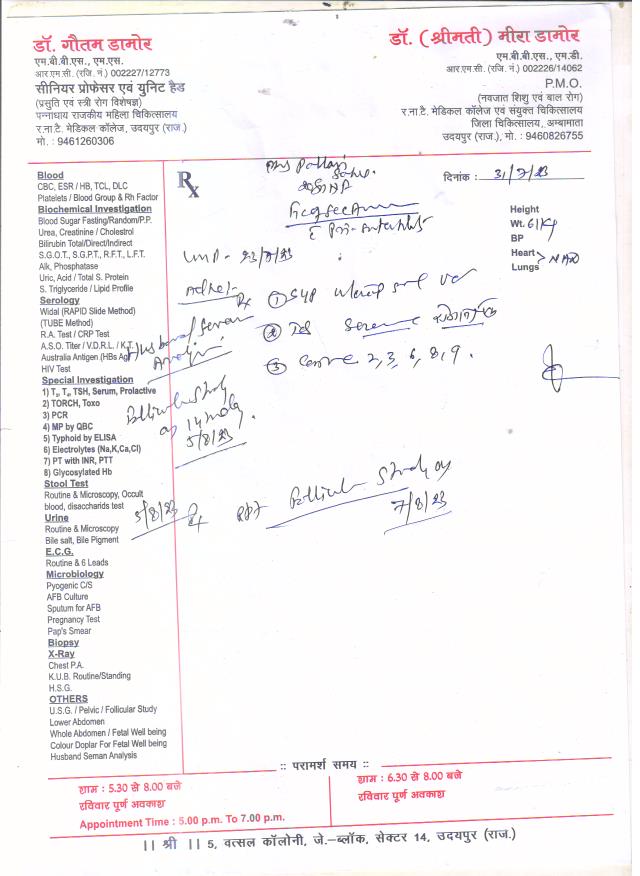 डॉ. गौतम डामोर
एम.बी.बी.एस., एम.एस.
आर.एम.सी. (रजि. नं.) 002227/12773
सीनियर प्रोफेसर एवं युनिट हैड
(प्रसुति एवं स्त्री रोग विशेषज्ञ)
पन्नाधाय राजकीय महिला चिकित्सालय
र.ना.टै. मेडिकल कॉलेज, उदयपुर (राज.)
मो. : 9461260306
डॉ. (श्रीमती) मीरा डामोर
एम.बी.बी.एस., एम.डी.
आर.एम.सी. (रजि. नं.) 002226/14062
P.M.O.
(नवजात शिशु एवं बाल रोग)
र.ना.टै. मेडिकल कॉलेज एवं संयुक्त चिकित्सालय
जिला चिकित्सालय, अम्बामाता
उदयपुर (राज.), मो. : 9460826755
Blood
CBC, ESR / HB, TCL, DLC
Platelets / Blood Group & Rh Factor
Biochemical Investigation
Blood Sugar Fasting/Random/P.P.
Urea, Creatinine / Cholestrol
Bilirubin Total/Direct/Indirect
S.G.O.T., S.G.P.T., R.F.T., L.F.T.
Alk, Phosphatase
Uric, Acid / Total S. Protein
S. Triglyceride / Lipid Profile
Serology
Widal (RAPID Slide Method)
(TUBE Method)
R.A. Test / CRP Test
A.S.O. Titer / V.D.R.L. / K.T.
Australia Antigen (HBs Ag)
HIV Test
Special Investigation
1) T₃, T₄, TSH, Serum, Prolactive
2) TORCH, Toxo
3) PCR
4) MP by QBC
5) Typhoid by ELISA
6) Electrolytes (Na,K,Ca,Cl)
7) PT with INR, PTT
8) Glycosylated Hb
Stool Test
Routine & Microscopy, Occult
blood, disaccharids test
Urine
Routine & Microscopy
Bile salt, Bile Pigment
E.C.G.
Routine & 6 Leads
Microbiology
Pyogenic C/S
AFB Culture
Sputum for AFB
Pregnancy Test
Pap's Smear
Biopsy
X-Ray
Chest P.A.
K.U.B. Routine/Standing
H.S.G.
OTHERS
U.S.G. / Pelvic / Follicular Study
Lower Abdomen
Whole Abdomen / Fetal Well being
Colour Doplar For Fetal Well being
Husband Seman Analysis
Rx
दिनांक : 31/7/23
Height
Wt. 61 Kg
BP
Heart
Lungs > NAD
LMP - 23/7/23
Rx ① Syp
②
③ 2, 3, 6, 8, 9.
Husband Semen
Analysis
Follicular Study
on 14
5/8/23
5/8/23
Rpt Follicular Study on
7/8/23
:: परामर्श समय ::
शाम : 5.30 से 8.00 बजे
रविवार पूर्ण अवकाश
Appointment Time : 5.00 p.m. To 7.00 p.m.
शाम : 6.30 से 8.00 बजे
रविवार पूर्ण अवकाश
|| श्री || 5, वत्सल कॉलोनी, जे.-ब्लॉक, सेक्टर 14, उदयपुर (राज.)